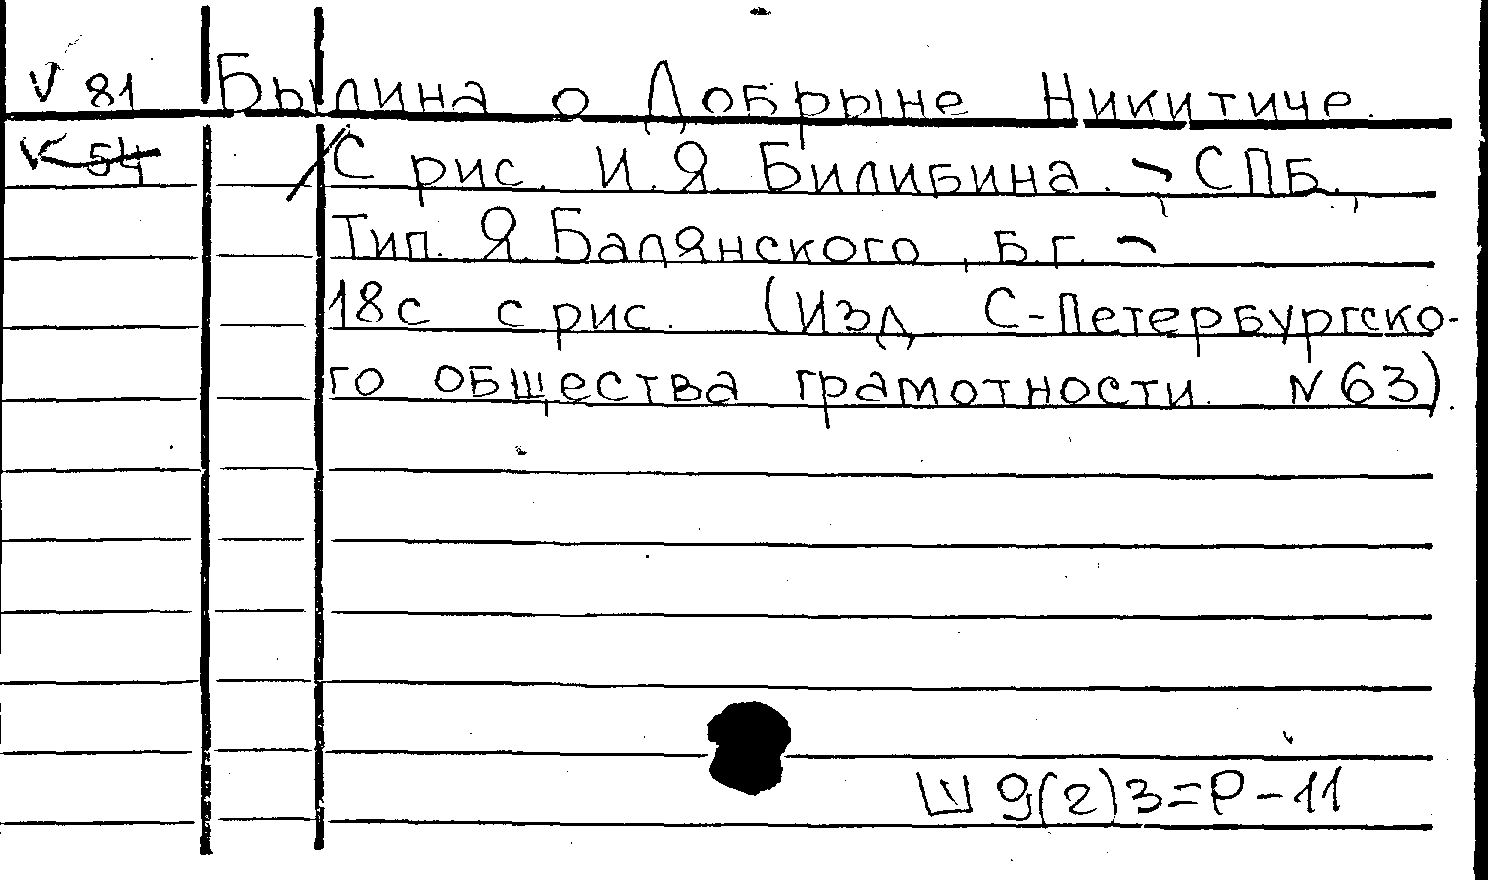 V 81 Былина о Добрыне Никитиче.
V 54 С рис. И.Я. Билибина. - СПБ.,
Тип. Я. Балянского, Б.Г. -
18с с рис. (Изд. С-Петербургско-
го общества грамотности. N 63).
Ш 9(2)3=Р-11